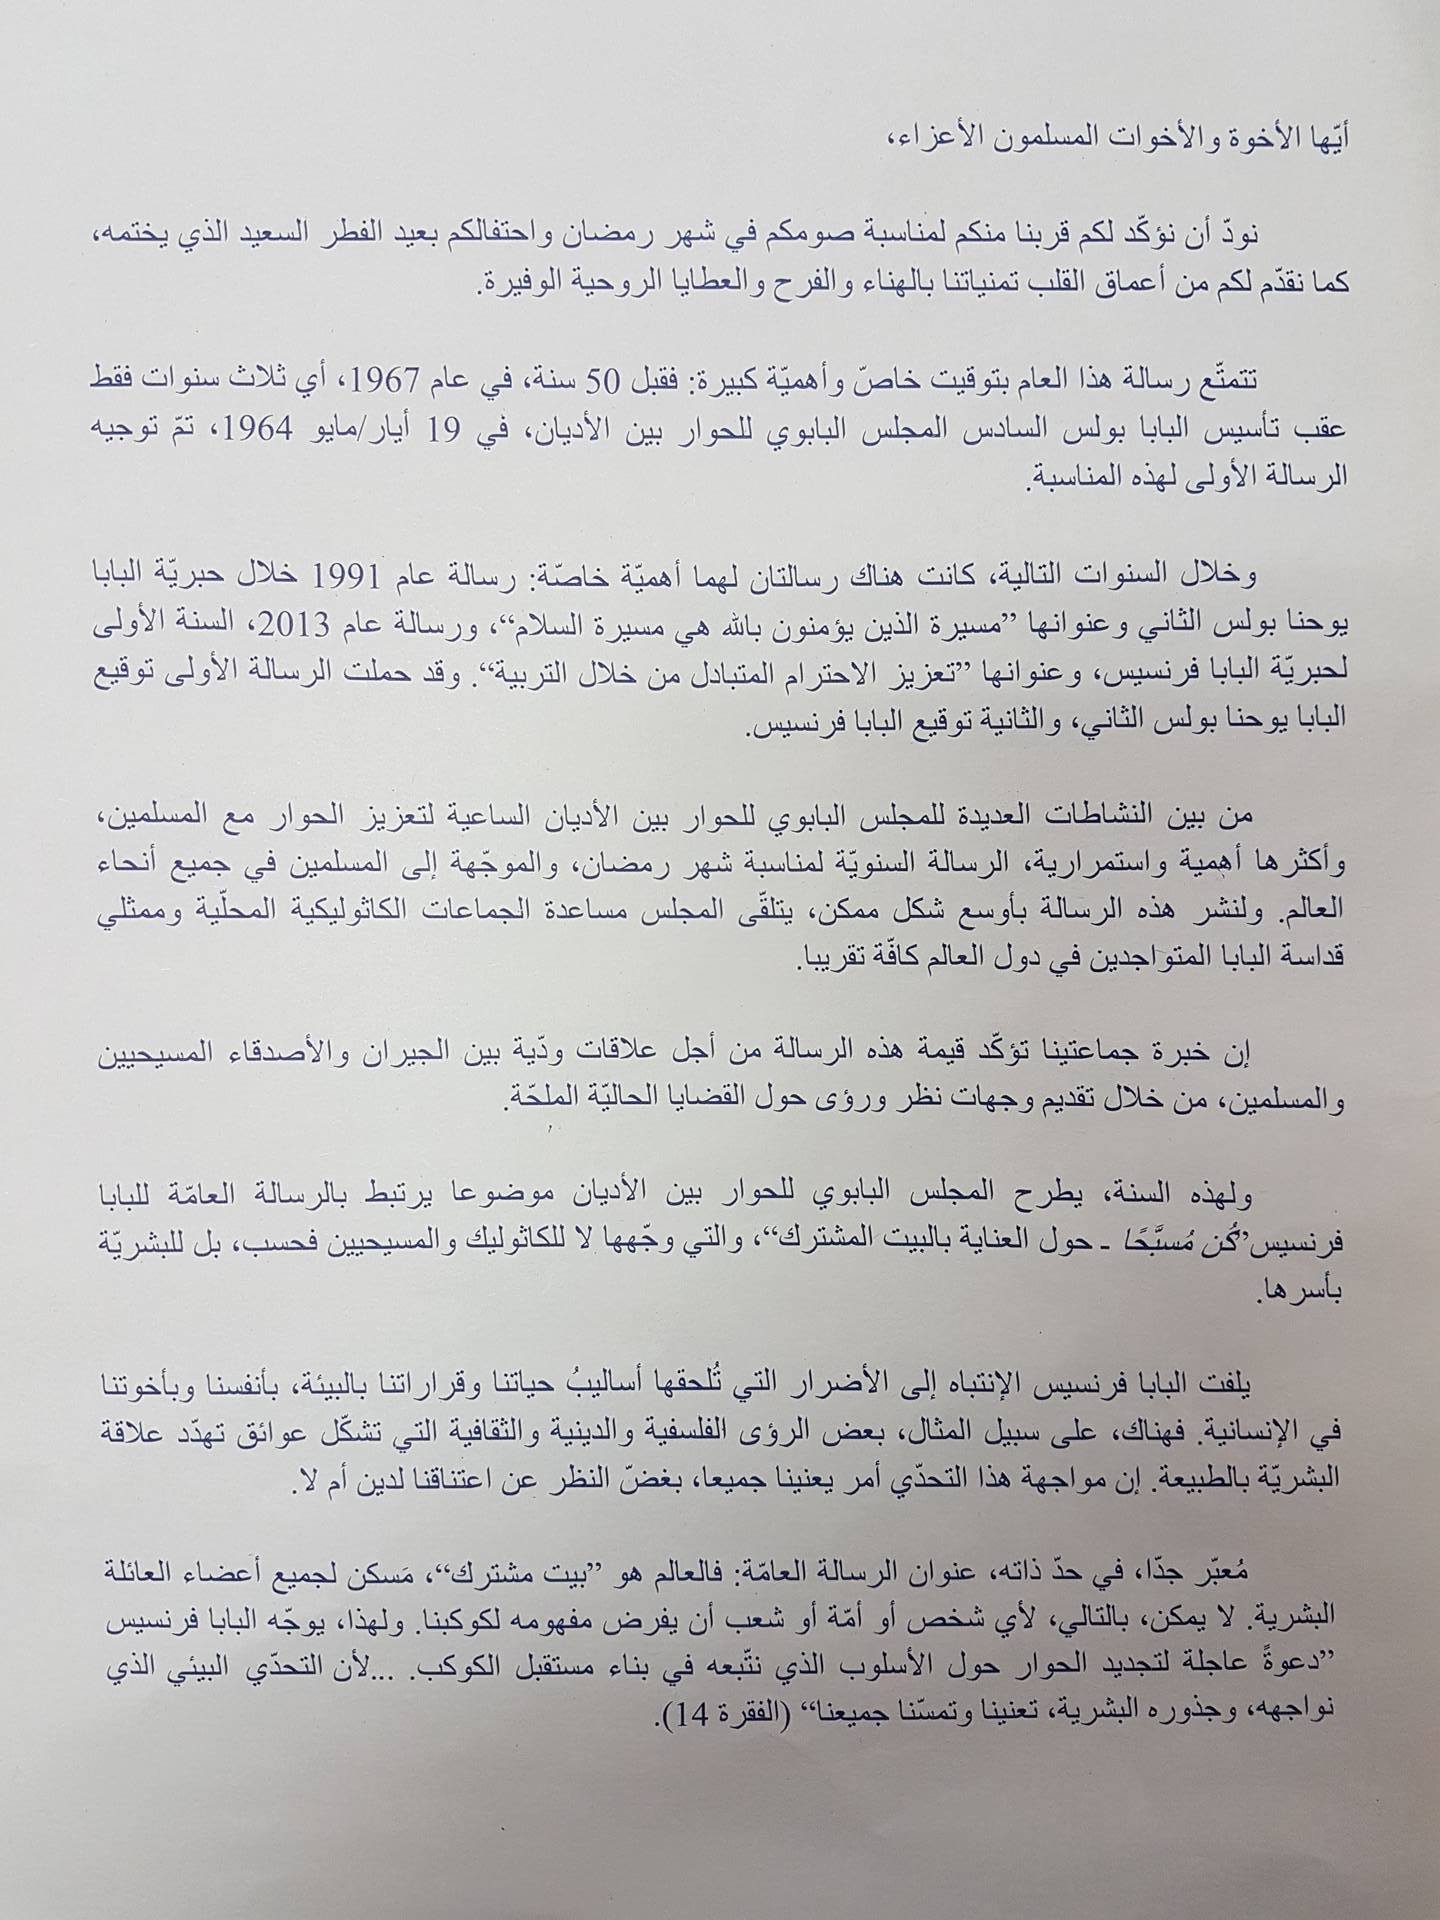 أيّها الأخوة والأخوات المسلمون الأعزاء،
نودّ أن نؤكّد لكم قربنا منكم لمناسبة صومكم في شهر رمضان واحتفالكم بعيد الفطر السعيد الذي يختمه،
كما نقدّم لكم من أعماق القلب تمنياتنا بالهناء والفرح والعطايا الروحية الوفيرة.
تتمتّع رسالة هذا العام بتوقيت خاصّ وأهميّة كبيرة: فقبل 50 سنة، في عام 1967، أي ثلاث سنوات فقط
عقب تأسيس البابا بولس السادس المجلس البابوي للحوار بين الأديان، في 19 أيار/مايو 1964، تمّ توجيه
الرسالة الأولى لهذه المناسبة.
وخلال السنوات التالية، كانت هناك رسالتان لهما أهميّة خاصّة: رسالة عام 1991 خلال حبريّة البابا
يوحنا بولس الثاني وعنوانها ”مسيرة الذين يؤمنون بالله هي مسيرة السلام“، ورسالة عام 2013، السنة الأولى
لحبريّة البابا فرنسيس، وعنوانها ”تعزيز الاحترام المتبادل من خلال التربية“. وقد حملت الرسالة الأولى توقيع
البابا يوحنا بولس الثاني، والثانية توقيع البابا فرنسيس.
من بين النشاطات العديدة للمجلس البابوي للحوار بين الأديان الساعية لتعزيز الحوار مع المسلمين،
وأكثرها أهمية واستمرارية، الرسالة السنويّة لمناسبة شهر رمضان، والموجّهة إلى المسلمين في جميع أنحاء
العالم. ولنشر هذه الرسالة بأوسع شكل ممكن، يتلقّى المجلس مساعدة الجماعات الكاثوليكية المحلّية وممثلي
قداسة البابا المتواجدين في دول العالم كافّة تقريبا.
إن خبرة جماعتينا تؤكّد قيمة هذه الرسالة من أجل علاقات ودّية بين الجيران والأصدقاء المسيحيين
والمسلمين، من خلال تقديم وجهات نظر ورؤى حول القضايا الحاليّة الملحّة.
ولهذه السنة، يطرح المجلس البابوي للحوار بين الأديان موضوعا يرتبط بالرسالة العامّة للبابا
فرنسيس”كُن مُسبَّحًا ـ حول العناية بالبيت المشترك“، والتي وجّهها لا للكاثوليك والمسيحيين فحسب، بل للبشريّة
بأسرها.
يلفت البابا فرنسيس الإنتباه إلى الأضرار التي تُلحقها أساليبُ حياتنا وقراراتنا بالبيئة، بأنفسنا وبأخوتنا
في الإنسانية. فهناك، على سبيل المثال، بعض الرؤى الفلسفية والدينية والثقافية التي تشكّل عوائق تهدّد علاقة
البشريّة بالطبيعة. إن مواجهة هذا التحدّي أمر يعنينا جميعا، بغضّ النظر عن اعتناقنا لدين أم لا.
مُعبّر جدّا، في حدّ ذاته، عنوان الرسالة العامّة: فالعالم هو ”بيت مشترك“، مَسكن لجميع أعضاء العائلة
البشرية. لا يمكن، بالتالي، لأي شخص أو أمّة أو شعب أن يفرض مفهومه لكوكبنا. ولهذا، يوجّه البابا فرنسيس
”دعوةً عاجلة لتجديد الحوار حول الأسلوب الذي نتّبعه في بناء مستقبل الكوكب. ...لأن التحدّي البيئي الذي
نواجهه، وجذوره البشرية، تعنينا وتمسّنا جميعنا“ (الفقرة 14).